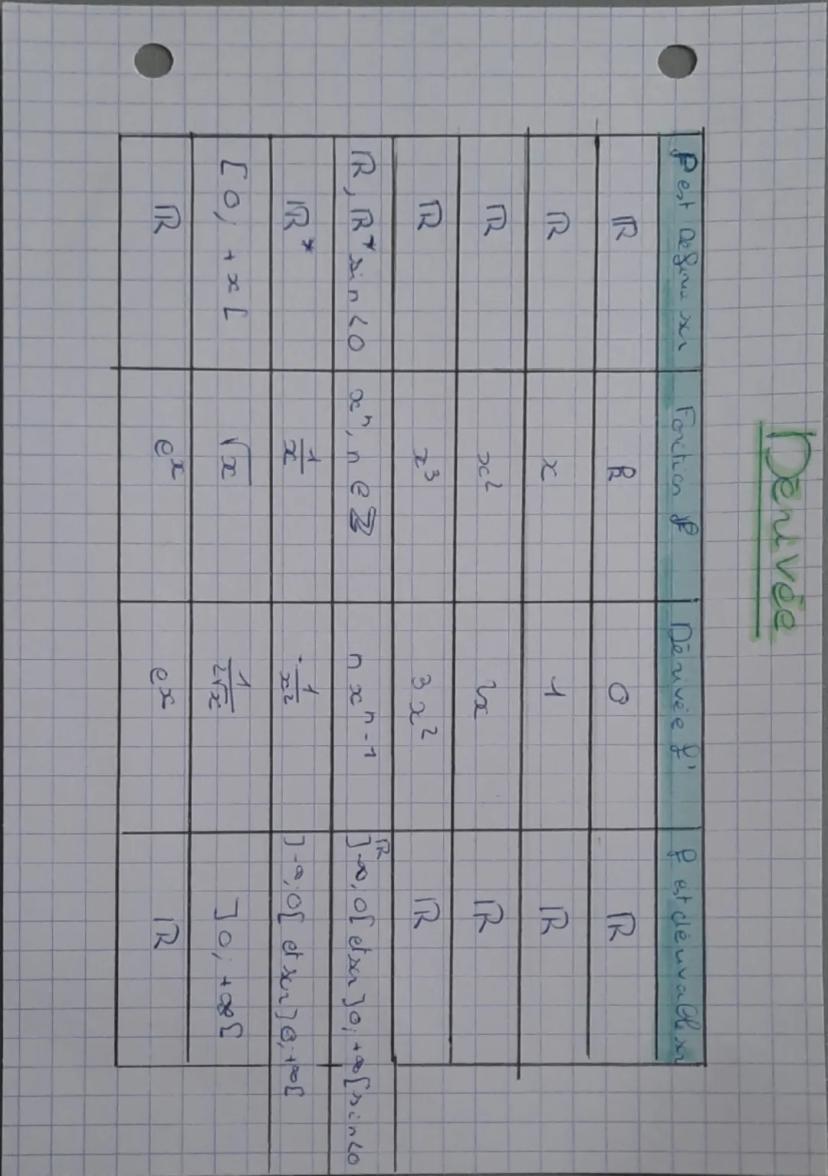 Dérivée
f est définie sur Fonction f Dérivée f' f est dérivable sur
ℝ k 0 ℝ
ℝ x 1 ℝ
ℝ x² 2x ℝ
ℝ x³ 3x² ℝ
ℝ, ℝ* si n<0 xⁿ, n ∈ ℤ n xⁿ⁻¹ ℝ ]-∞,0[ et sur ]0;+∞[ si n<0
ℝ* 1/x -1/x² ]-∞,0[ et sur ]0;+∞[
[0; +x[ √x 1/2√x ]0; +∞[
ℝ eˣ eˣ ℝ